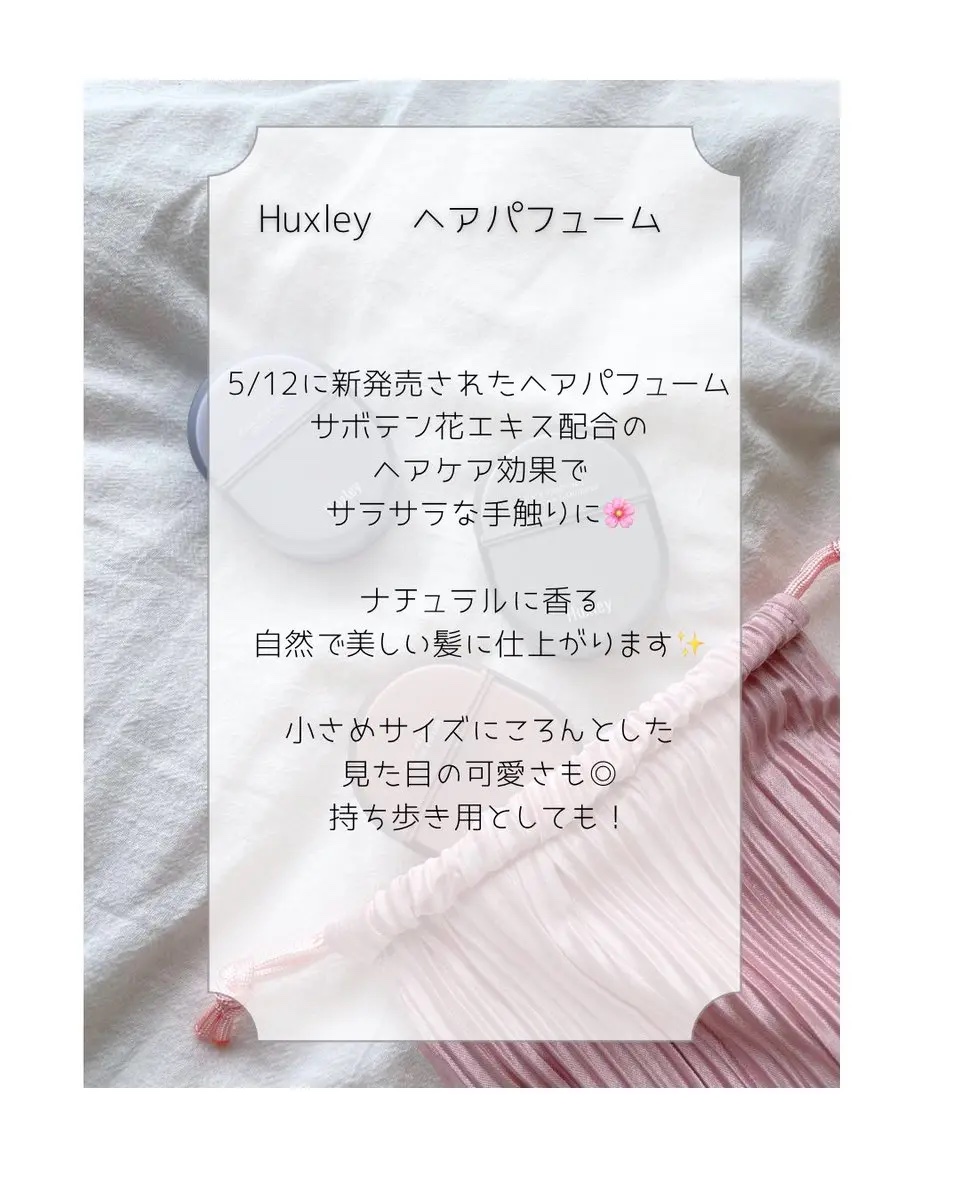 Huxley　ヘアパフューム
5/12に新発売されたヘアパフューム
サボテン花エキス配合の
ヘアケア効果で
サラサラな手触りに🌸
ナチュラルに香る
自然で美しい髪に仕上がります✨
小さめサイズにころんとした
見た目の可愛さも◎
持ち歩き用としても！
Huxley
Huxley